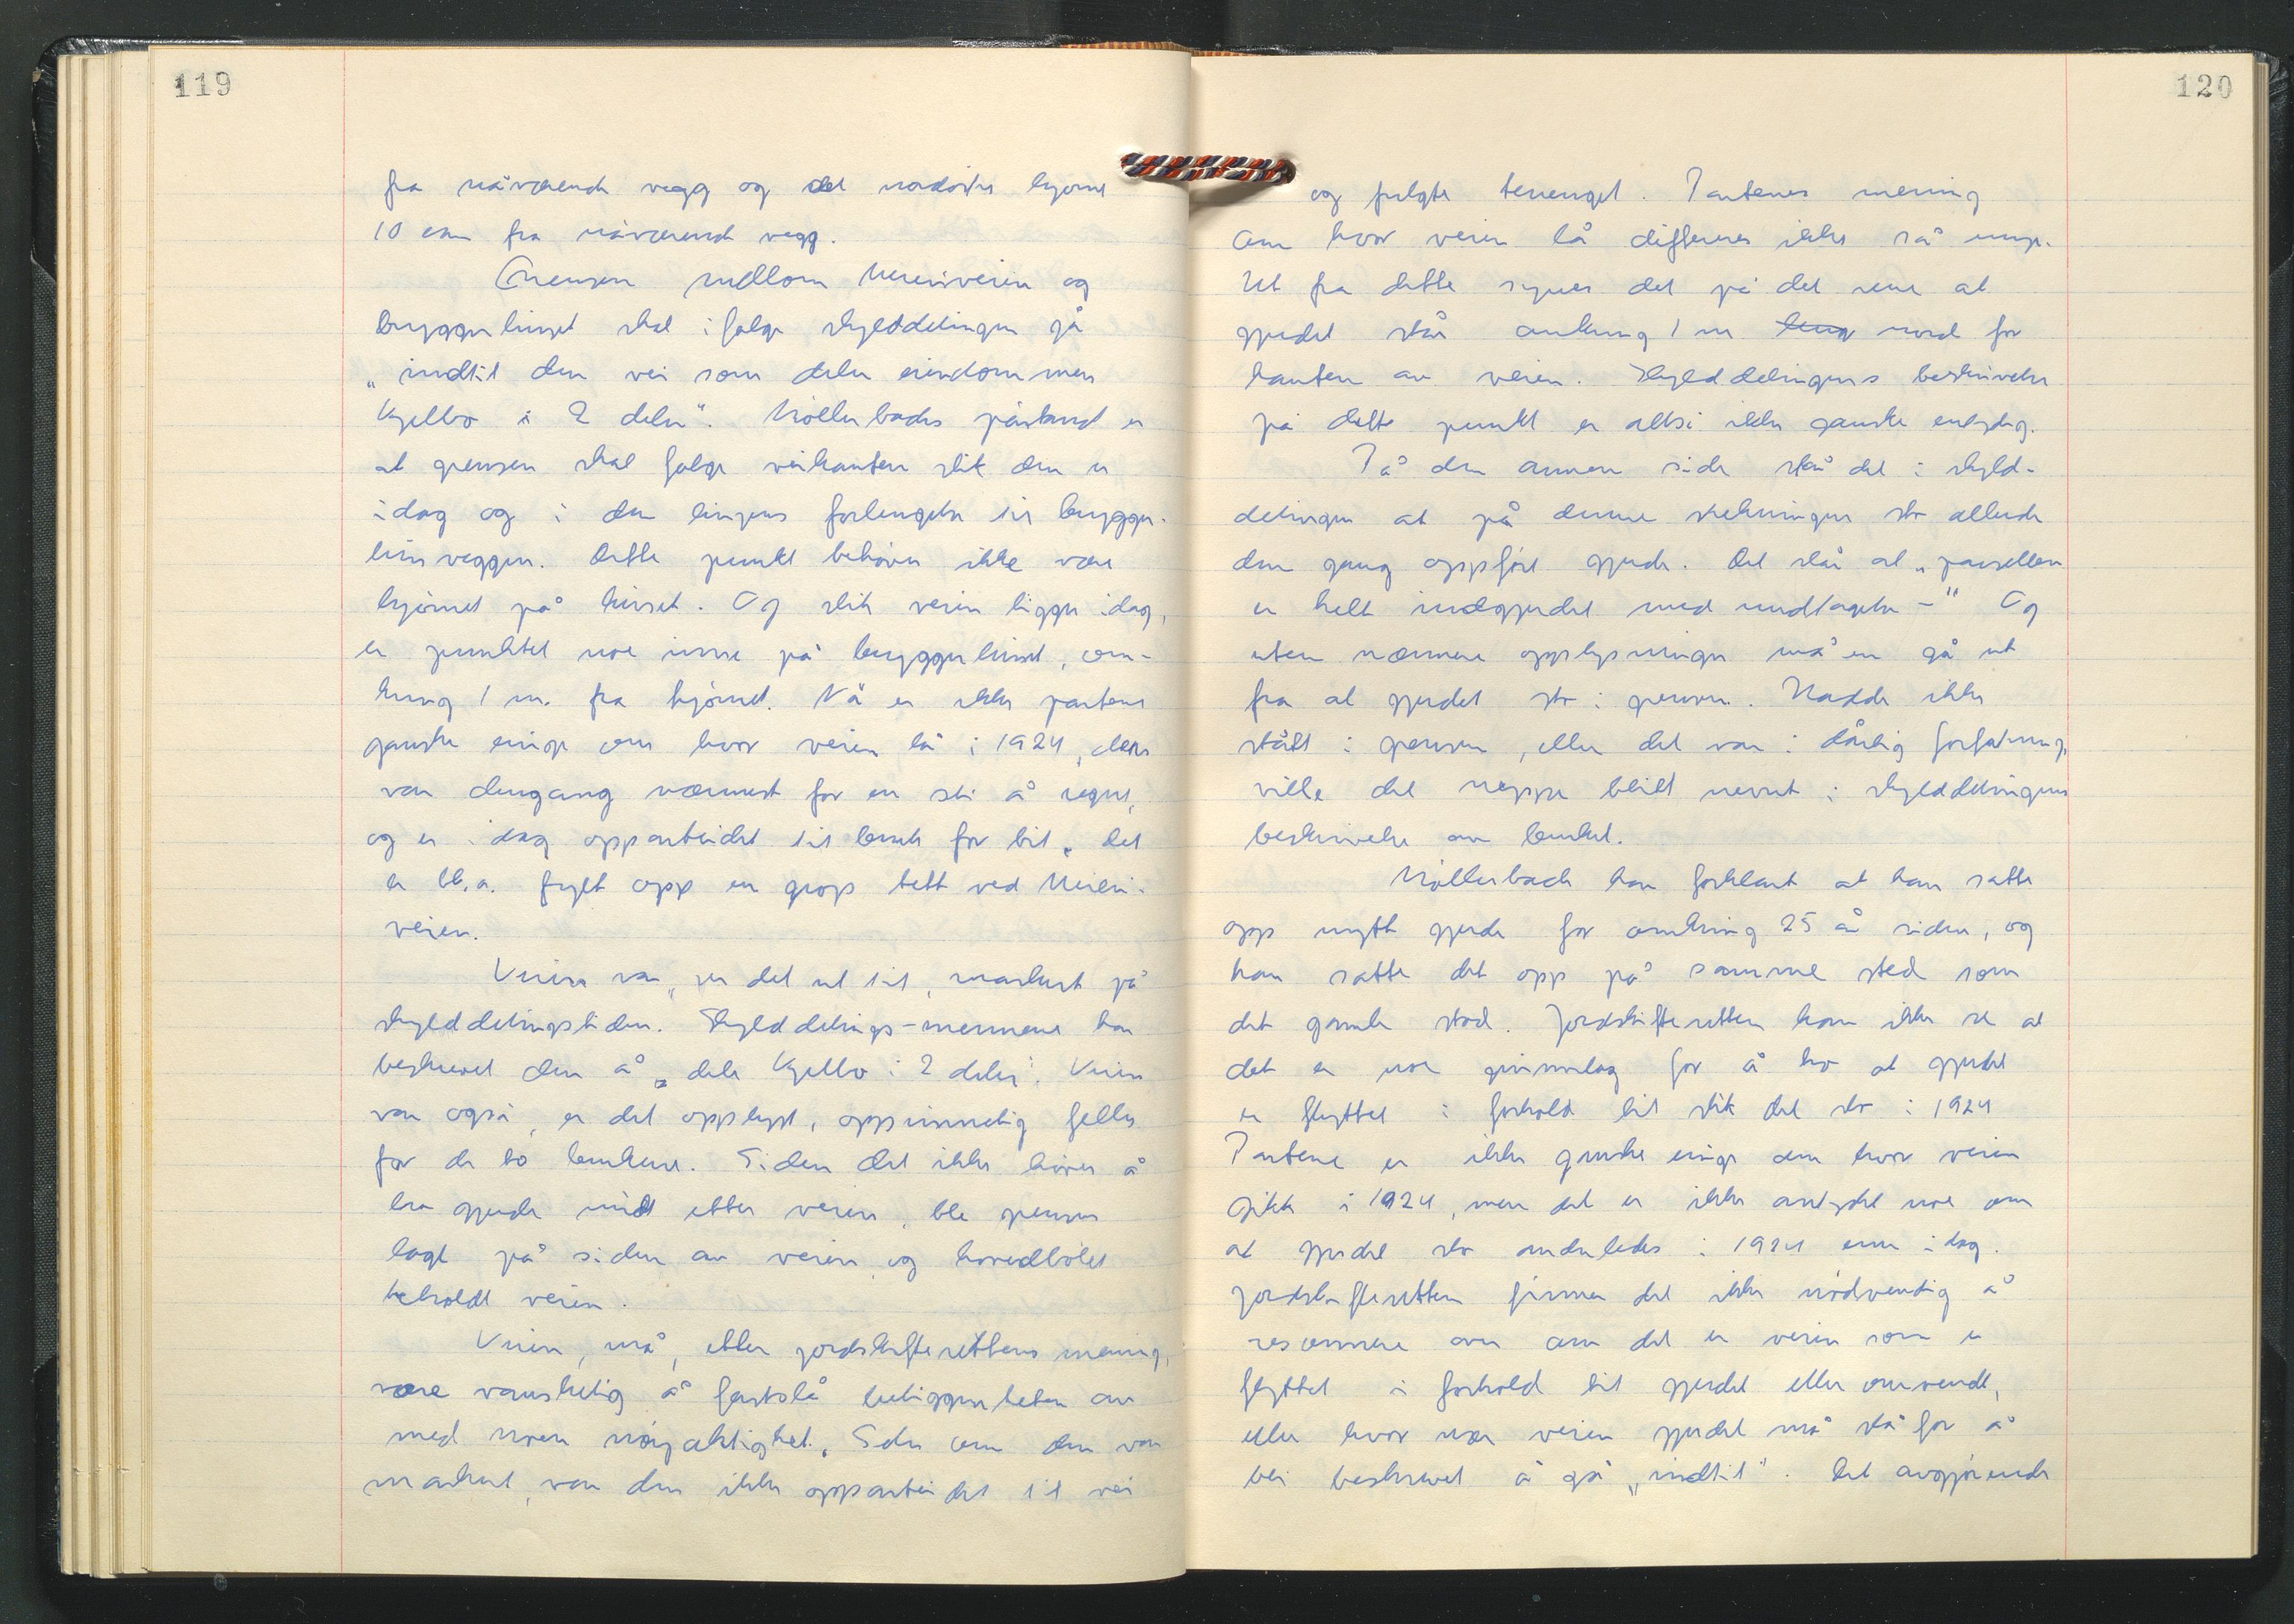 119
fra nåværende vegg og det nordøstre hjørnet
10 cm fra nåværende vegg.
Grensen mellom Mereiveien og
bryggerhuset skal ifølge skylddelingen gå
„indtil den vei som deler eiendommen
Kjelbo i 2 deler". Møllerbacks påstand er
at grensen skal følge veikanten slik den er
idag og i den linjens forlengelse til brygger-
husveggen. Dette punkt behøver ikke være
hjørnet på huset. Og slik veien ligger idag,
er punktet noe inne på bryggerhuset, om-
kring 1 m. fra hjørnet. Nå er ikke partene
ganske enige om hvor veien lå i 1924, den
var dengang nærmest for en sti å regne,
og er idag opparbeidet til bruk for bil, det
er bl.a. fylt opp en grop tett ved Mereivei-
veien.
Veien var, ser det ut til, markert på
skylddelingstiden. Skylddelings-mennene har
beskrevet den å „dele Kjelbo i 2 deler". Veien
var også, er det opplyst, opprinnelig felles
for de to brukene. Siden det ikke høver å
ha gjerde midt etter veien, ble grensen
lagt på siden av veien og hovedbølet
beholdt veien.
Veien, må, etter jordskifterettens mening,
være vanskelig å fastslå beliggenheten av
med noen nøyaktighet. Selv om den var
markert, var den ikke opparbeidet til vei
120
og fulgte terrenget. Partenes mening
om hvor veien lå differerer ikke så mye.
Ut fra dette synes det på det rene at
gjerdet står omkring 1 m nord for
kanten av veien. Skylddelingens beskrivelse
på dette punkt er altså ikke ganske entydig.
På den annen side står det i skyld-
delingen at på denne strekningen sto allerede
den gang oppført gjerde. Det står at „parsellen
er helt indgjerdet med undtagelse –" Og
uten nærmere opplysninger må en gå ut
fra at gjerdet sto i grensen. Hadde ikke
stått i grensen, eller det var i dårlig forfatning,
ville det neppe blitt nevnt i skylddelingens
beskrivelse av bruket.
Møllerback har forklart at han satte
opp nytt gjerde for omkring 25 år siden, og
han satte det opp på samme sted som
det gamle stod. Jordskifteretten kan ikke se at
det er noe grunnlag for å tro at gjerdet
er flyttet i forhold til slik det sto i 1924
Partene er ikke ganske enige om hvor veien
gikk i 1924, men det er ikke antydet noe om
at gjerdet sto anderledes i 1924 enn idag.
Jordskifteretten finner det ikke nødvendig å
resonnere over om det er veien som er
flyttet i forhold til gjerdet eller omvendt,
eller hvor nær veien gjerdet må stå for å
bli beskrevet å gå „indtil". Det avgjørende